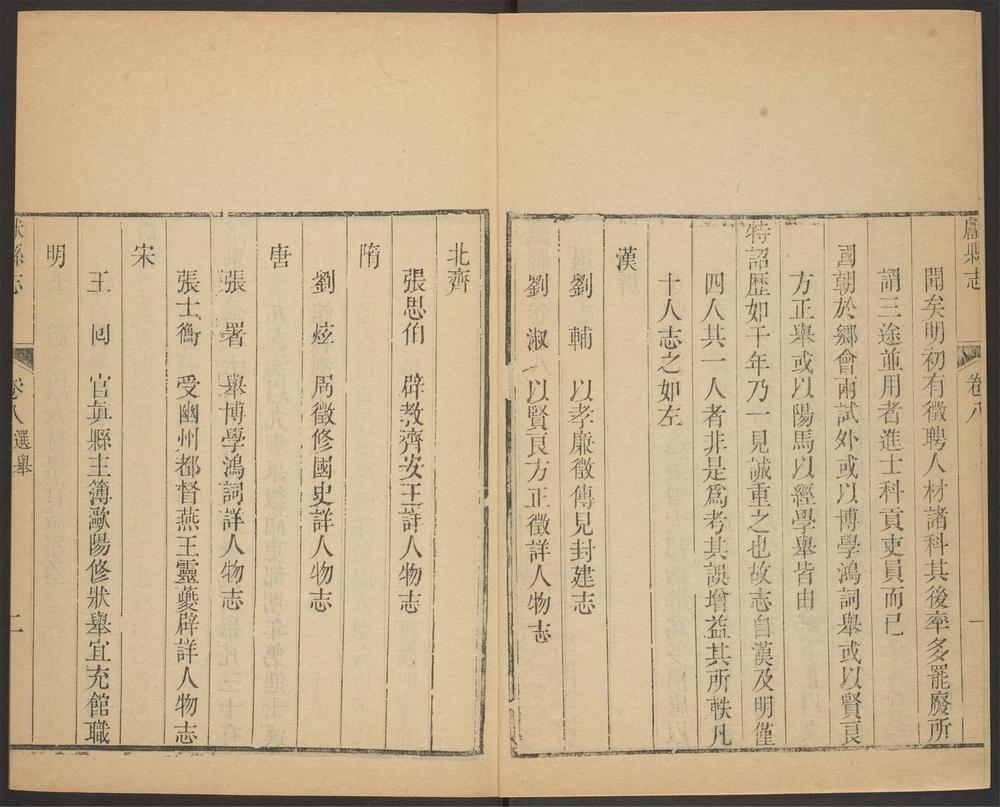 縣志
卷八
一
聞矣明初有徵聘人材諸科其後率多罷廢所
謂三途並用者進士科貢吏員而已
國朝於鄉會兩試外或以博學鴻詞舉或以賢良
方正舉或以陽馬以經學舉皆由
特詔歷如干年乃一見誠重之也故志自漢及明僅
四人其一人者非是爲考其誤增益其所軼凡
十人志之如左
漢
劉輔 以孝廉徵傳見封建志
劉淑 以賢良方正徵詳人物志
北齊
張思伯 辟教齊安王詳人物志
隋
劉炫 周徵修國史詳人物志
唐
張署 舉博學鴻詞詳人物志
張士衡 受幽州都督燕王靈夔辟詳人物志
宋
王回 官眞縣主簿歐陽修狀舉宜充館職
明
縣志
卷八選舉
二